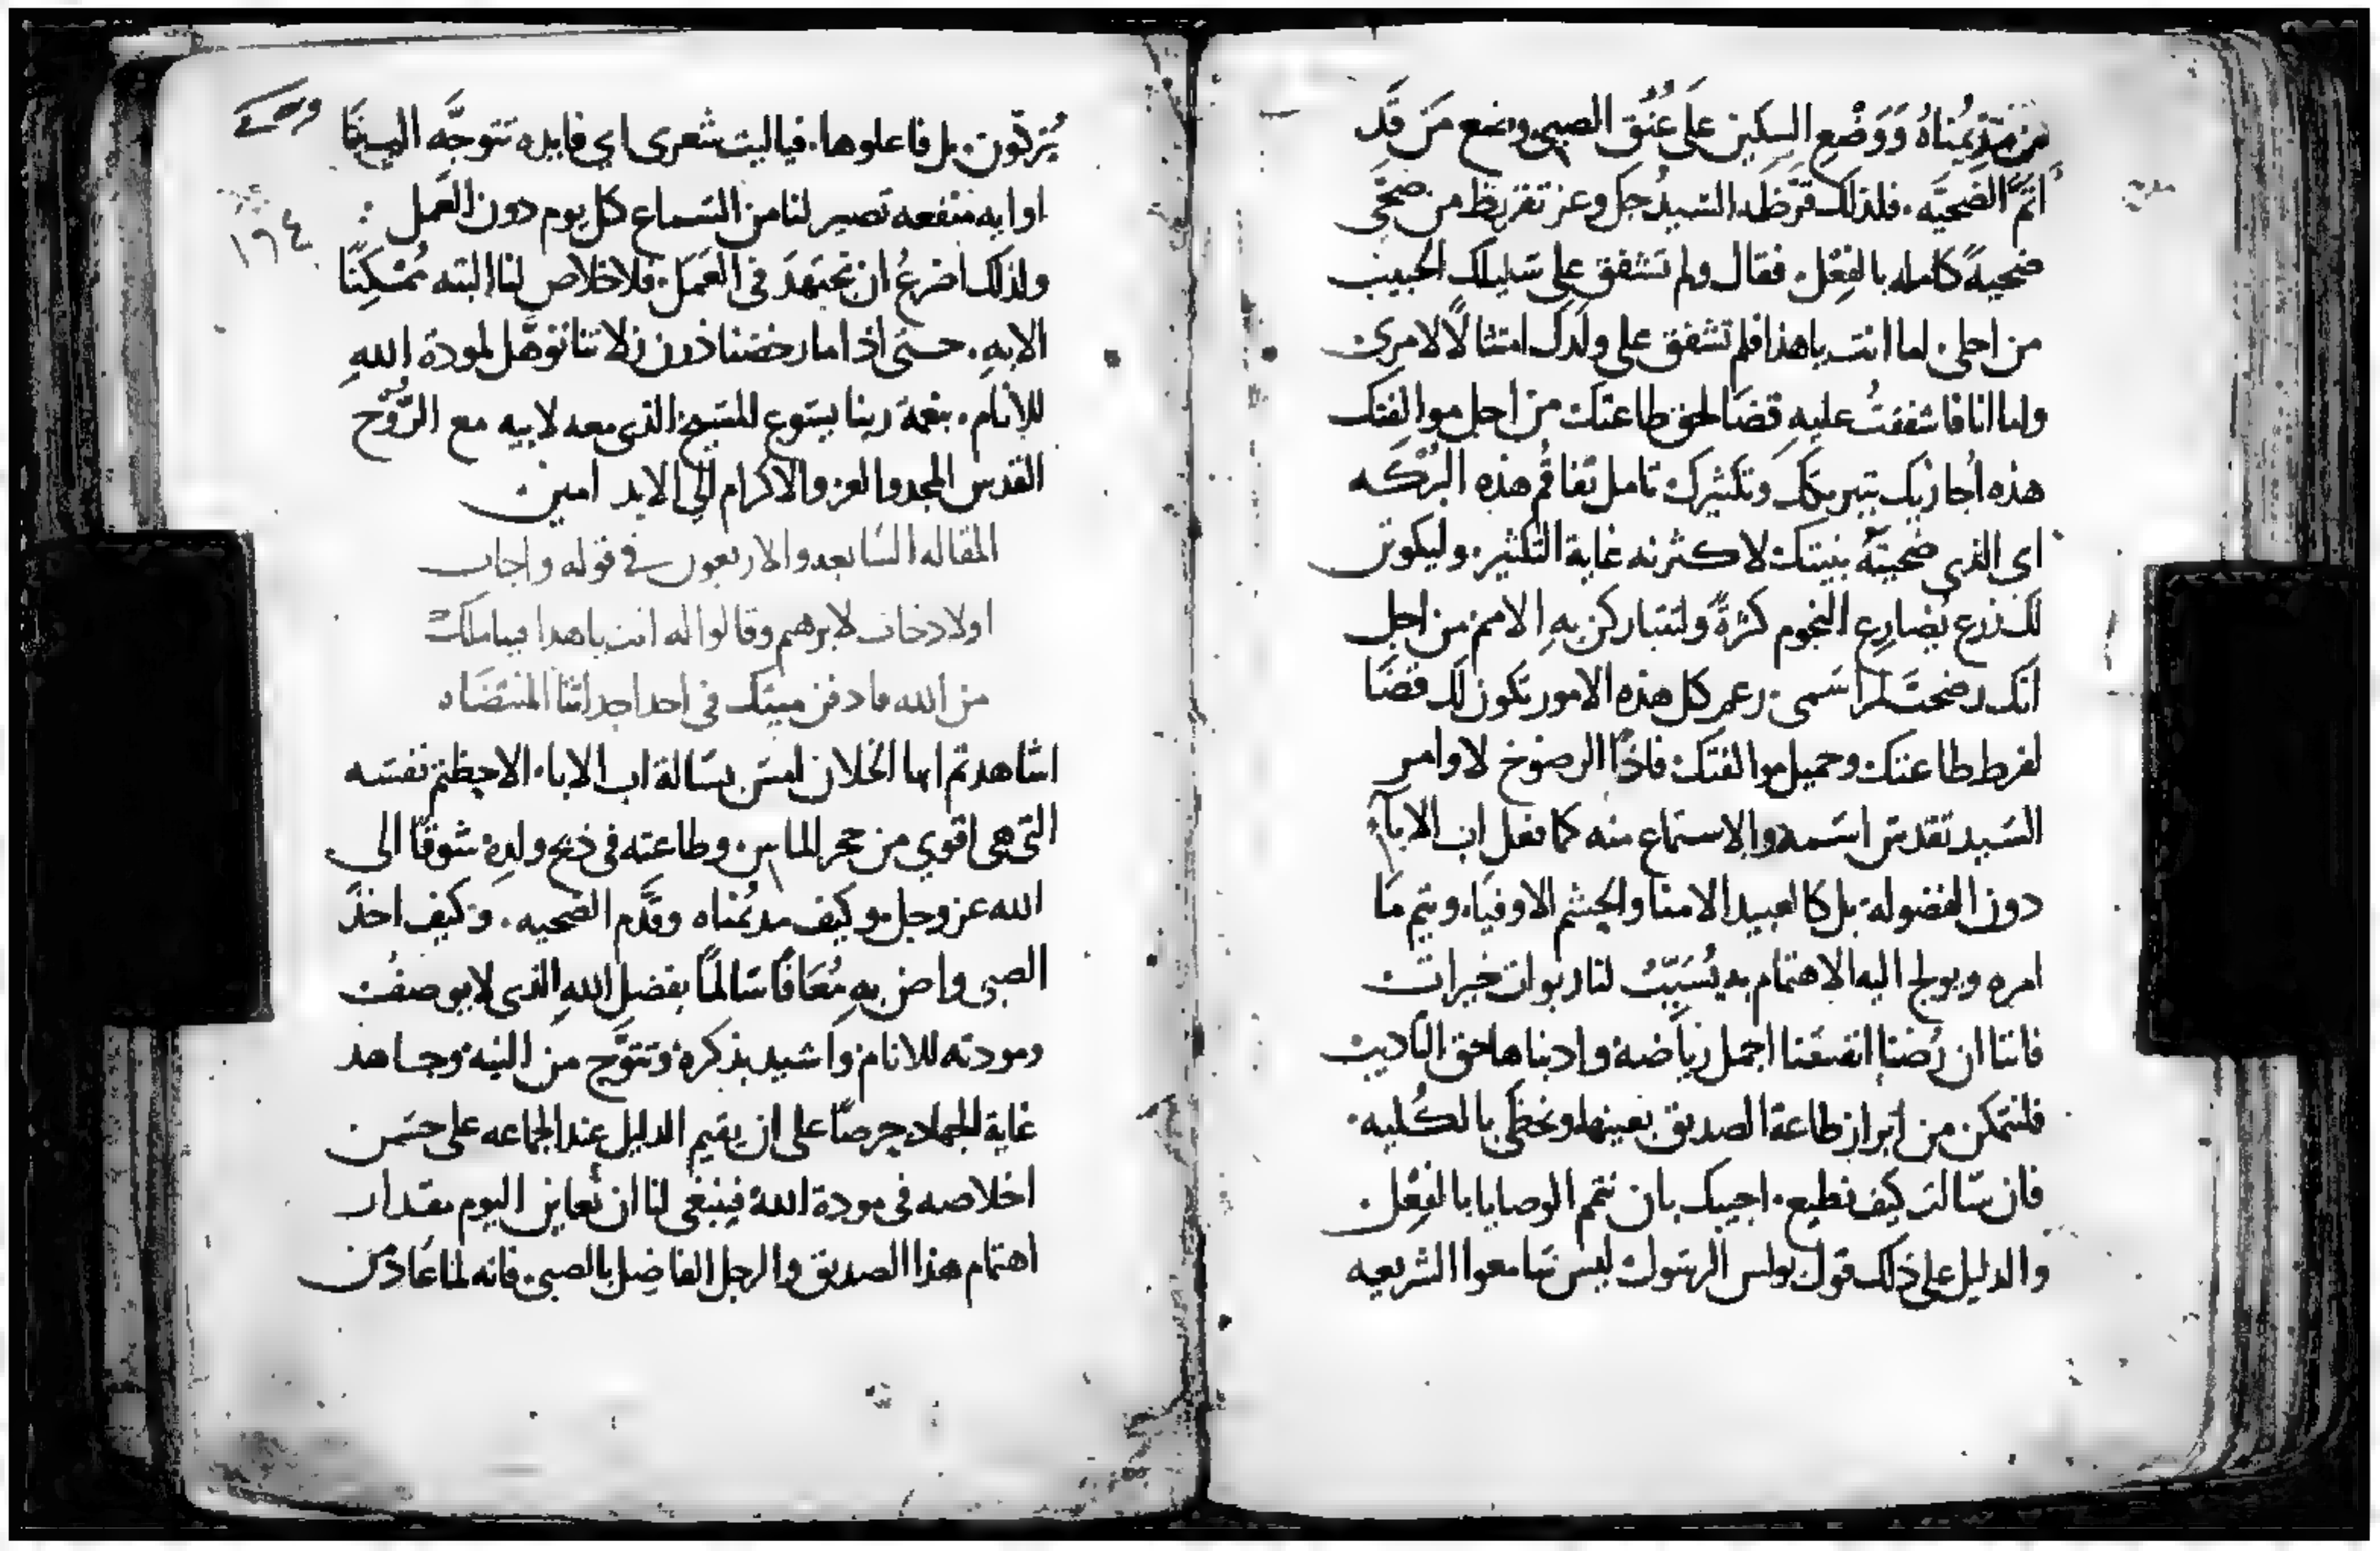 من مدّ يُمناهُ وَوَضْعِ السكين على عُنُق الصبي وضع مَن قَد
اتمَّ الضحيَّه. فلذلك قرَّظه السيدُ جل وعز تقريظ من ضحَّى
ضحيةً كامله بالفِعْل. فقال ولم تشفق على سَليلك الحبيب
من اجلي. اما انت ياهذا فلم تشفق على ولدك امتثالًا لامري
واما انا فاشفقتُ عليهِ قضَا لحق طاعتك من اجل موالفتك
هذه اُجازيك بتبريكك وتكثيرك تامل تفاقُم هذه البرَكه
اي الذي ضحيتَه بنيتك لاكثرنه غاية التكثير. وليكونن
لك زرع يُضارع النجوم كثرةً ولتتباركن بهِ الامم من اجل
انك رضختَ لمراسمي. زعم كل هذه الامور تكون لك قضَا
لفرط طاعتك وجميل موالفتك فاذًا الرضوخ لاوامر
السَيد تقدس اسمه والاستماع منه كما فعل اب الابا
دون الفضوله. بل كالعبيد الامنا والحشم الاوفيا. ويتم مَا
امره ويولج اليه الاهتمام به يُسَبِّبُ لنا ربوات خيرات
فاننا ان رُضنا انفسَنا اجمل رياضة وادبناها حق التاديب
فلنتمكن من ابراز طاعة الصديق بعينها ونحظَى بالكُليه.
فان سَالت كيف نطيع. اجيبك بان نتمم الوصايا بالفِعْل
والدليل على ذلك قول بولس الرسول ليس سَامعوا الشريعه
يُزكَّون. بل فاعلوها. فياليت شعري اي فايده تتوجَّه الينا
او ايه منفعه تصير لنا من السَماع كل يوم دون العَمل
١٩٤
ولذلك اضرعُ ان نجتهدَ في العَمَل. فلا خلاص لنا البته مُمْكِنًا
الابهِ. حتى اذا ما رحضنا درن زلاتنا نوصَّل لمودة اللهِ
للانام. بنعمة ربنا يسَوع المسَيح الذي معه لابيه مع الرُوْح
القدس المجد والعز والاكرام الى الابد امين
المقاله السَابعه والاربعون في قوله واجاب
اولاد خات لابرهم وقالوا له انت ياهذا فينا ملك
من الله فادفن ميتك في احد اجداثنا المنتضَاه
اشاهدتم ايها الخلان امسَ بسَالة اب الابا. الاحظتم نفسَه
التي هي اقوي من حجر الماس. وطاعته في ذبح ولدِهِ شوقًا الى
الله عز وجل وكيف مد يُمناه وقدَّم الضحيه. وكيف اخذ
الصبي واض بهِ مُعَافًا سَالمًا بفضل اللهِ الذي لايوصفُ
ومودته للانام. واشيد بذكره وتتوَّج من النيه. وجاهد
غاية الجهاد حرصًا على ان يقيم الدليل عند الجماعه على حسَن
اخلاصه في مودة اللهِ فينبغي لنا ان نُعاين اليوم مقدار
اهتمام هذا الصديق والرجل الفاضل بالصبي. فانه لمَا عَاد من